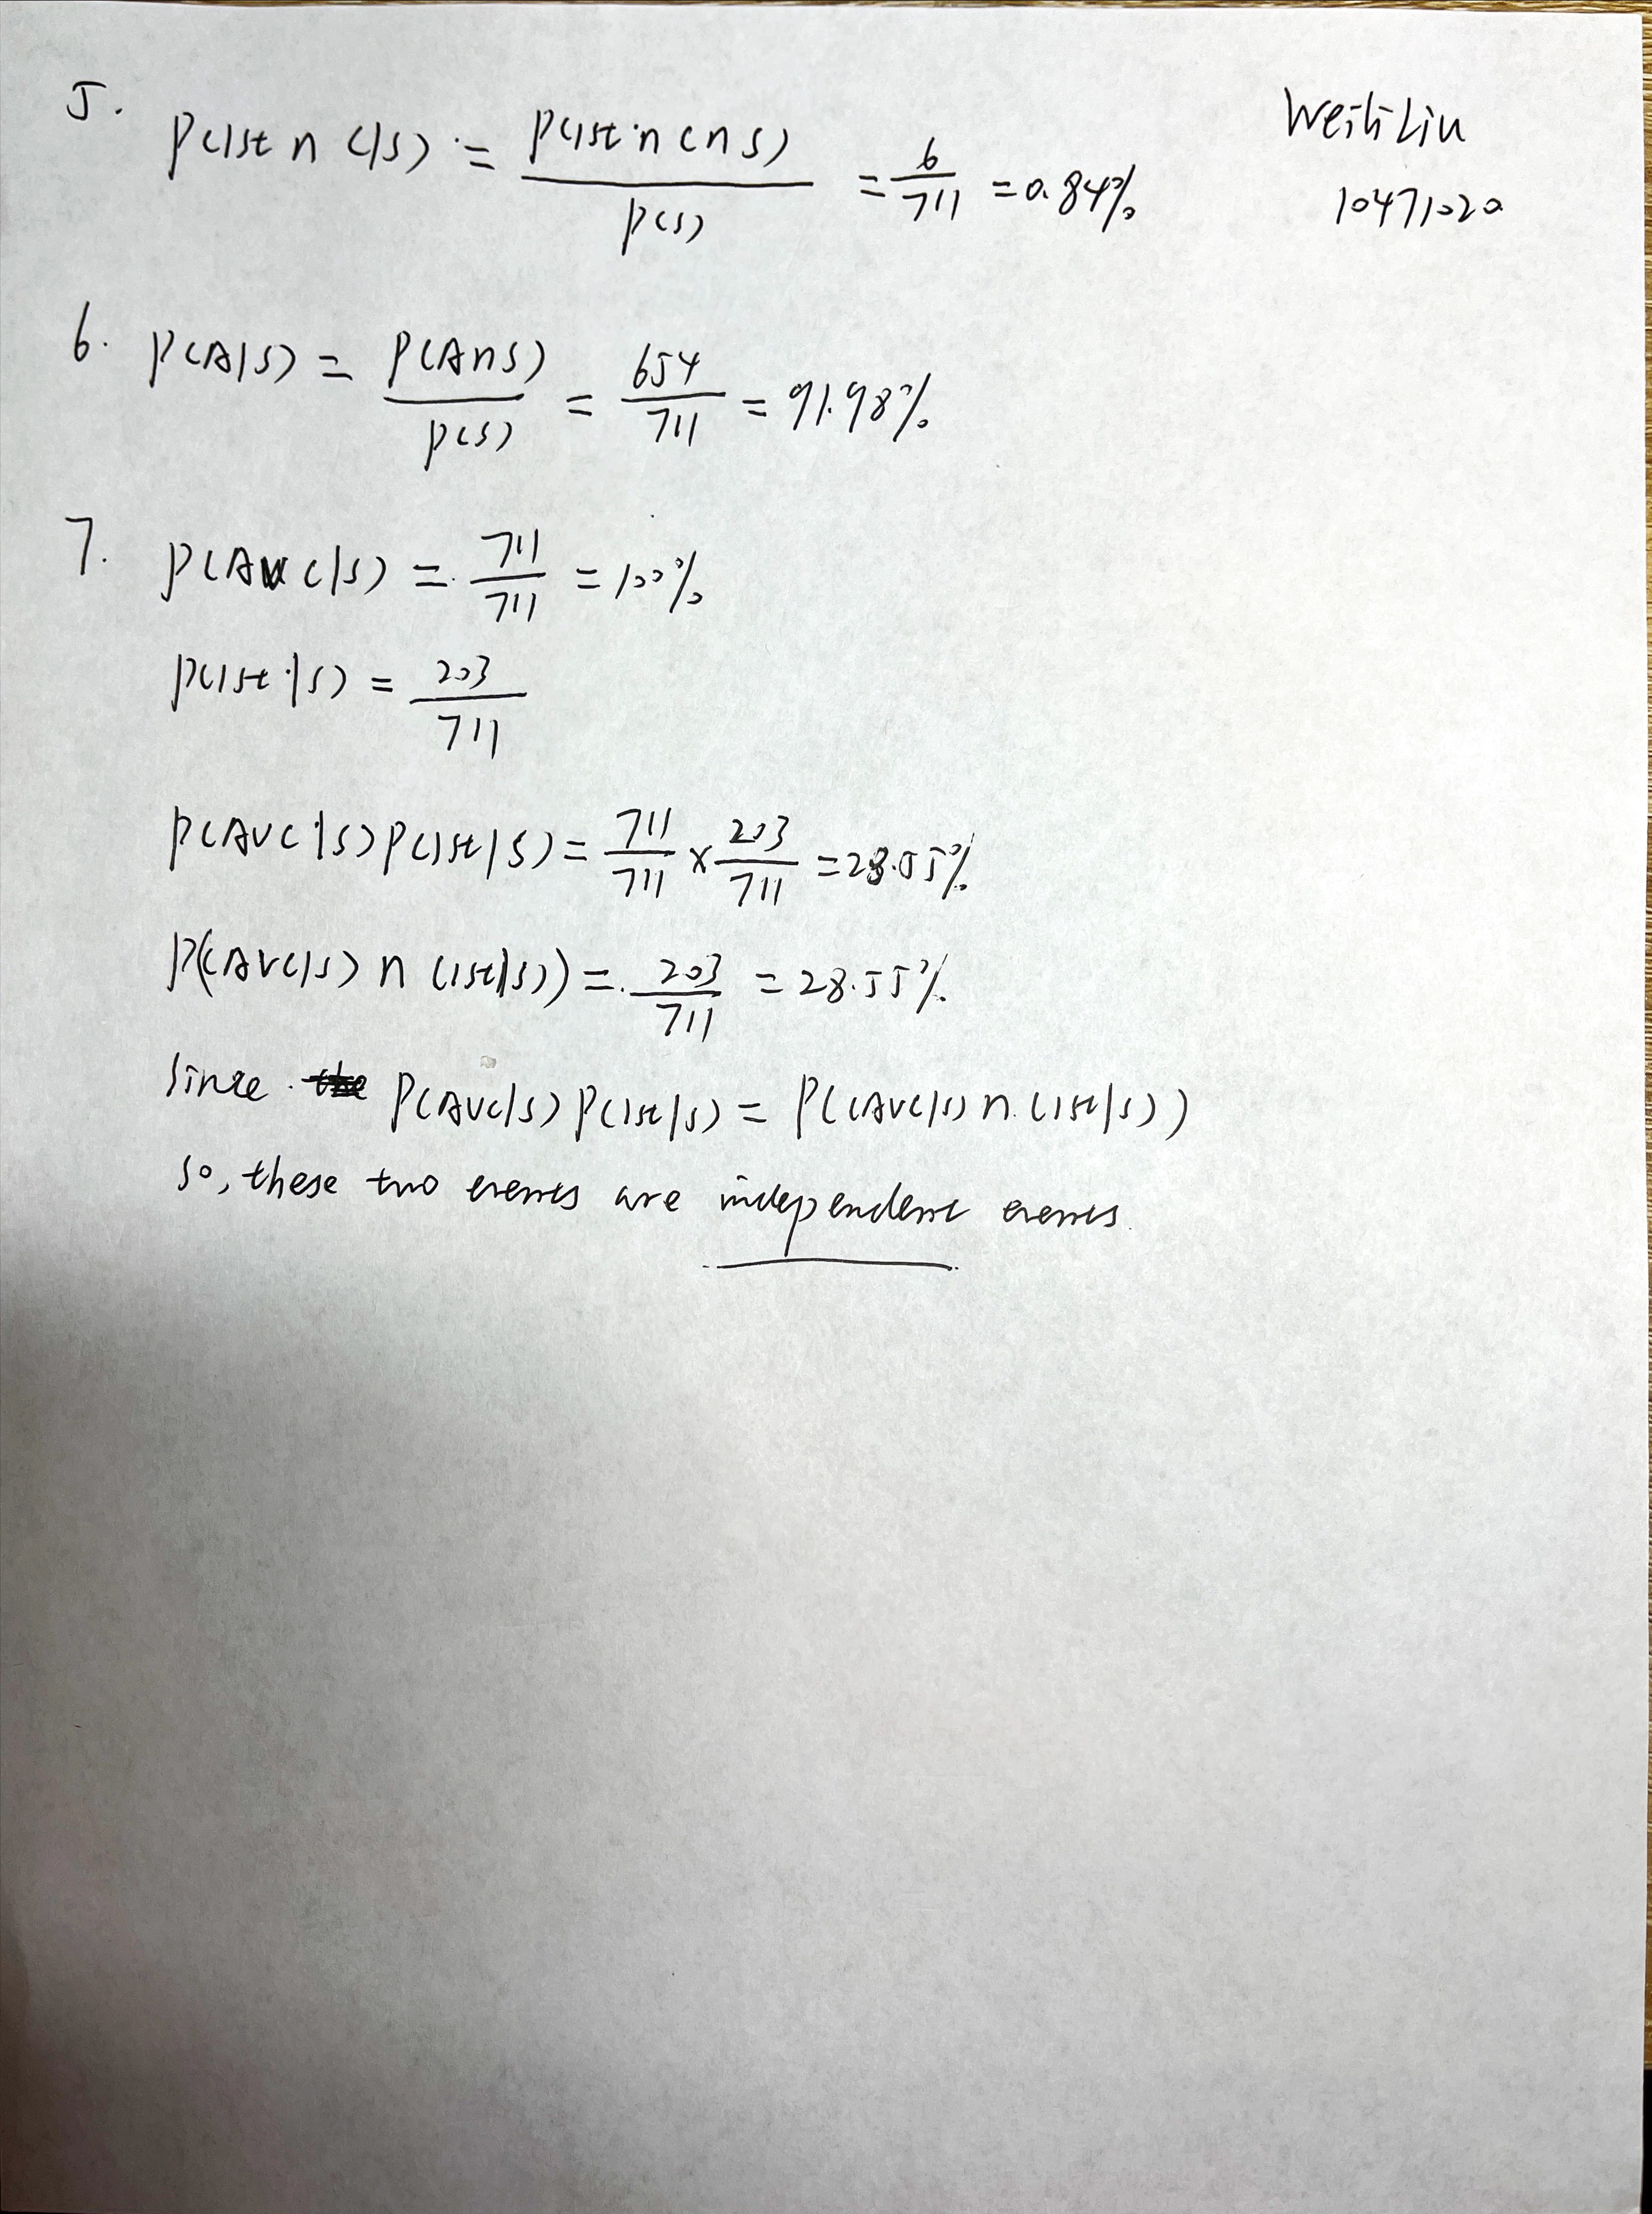 5. P(1st ∩ C|S) = P(1st ∩ C ∩ S) / P(S) = 6/711 = 0.84%
Weili Liu
10471020
6. P(A|S) = P(A∩S) / P(S) = 654/711 = 91.98%
7. P(A∪C|S) = 711/711 = 100%
P(1st|S) = 203/711
P(A∪C|S)P(1st|S) = 711/711 × 203/711 = 28.55%
P((A∪C|S) ∩ (1st|S)) = 203/711 = 28.55%
Since P(A∪C|S)P(1st|S) = P((A∪C|S) ∩ (1st|S))
So, these two events are independent events.